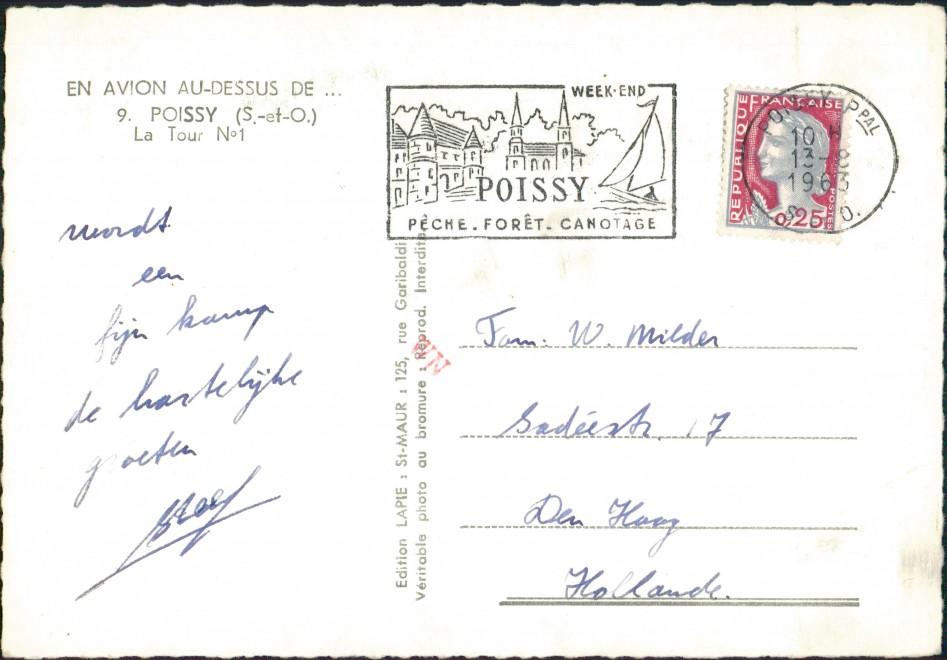 EN AVION AU-DESSUS DE ...
9. POISSY (S.-et-O.)
La Tour N°1
wordt
een
fijn kamp
de hartelijke
groeten
WEEK-END
POISSY
PÊCHE - FORÊT - CANOTAGE
POISSY PPAL
10 H
13-8
1963
S O.
REPUBLIQUE FRANÇAISE
POSTES
0,25
Edition LAPIE : St-MAUR : 125, rue Garibaldi
Véritable photo au bromure : Reprod. Interdite
Fam. W. Milder
17
Den Haag
Hollande.